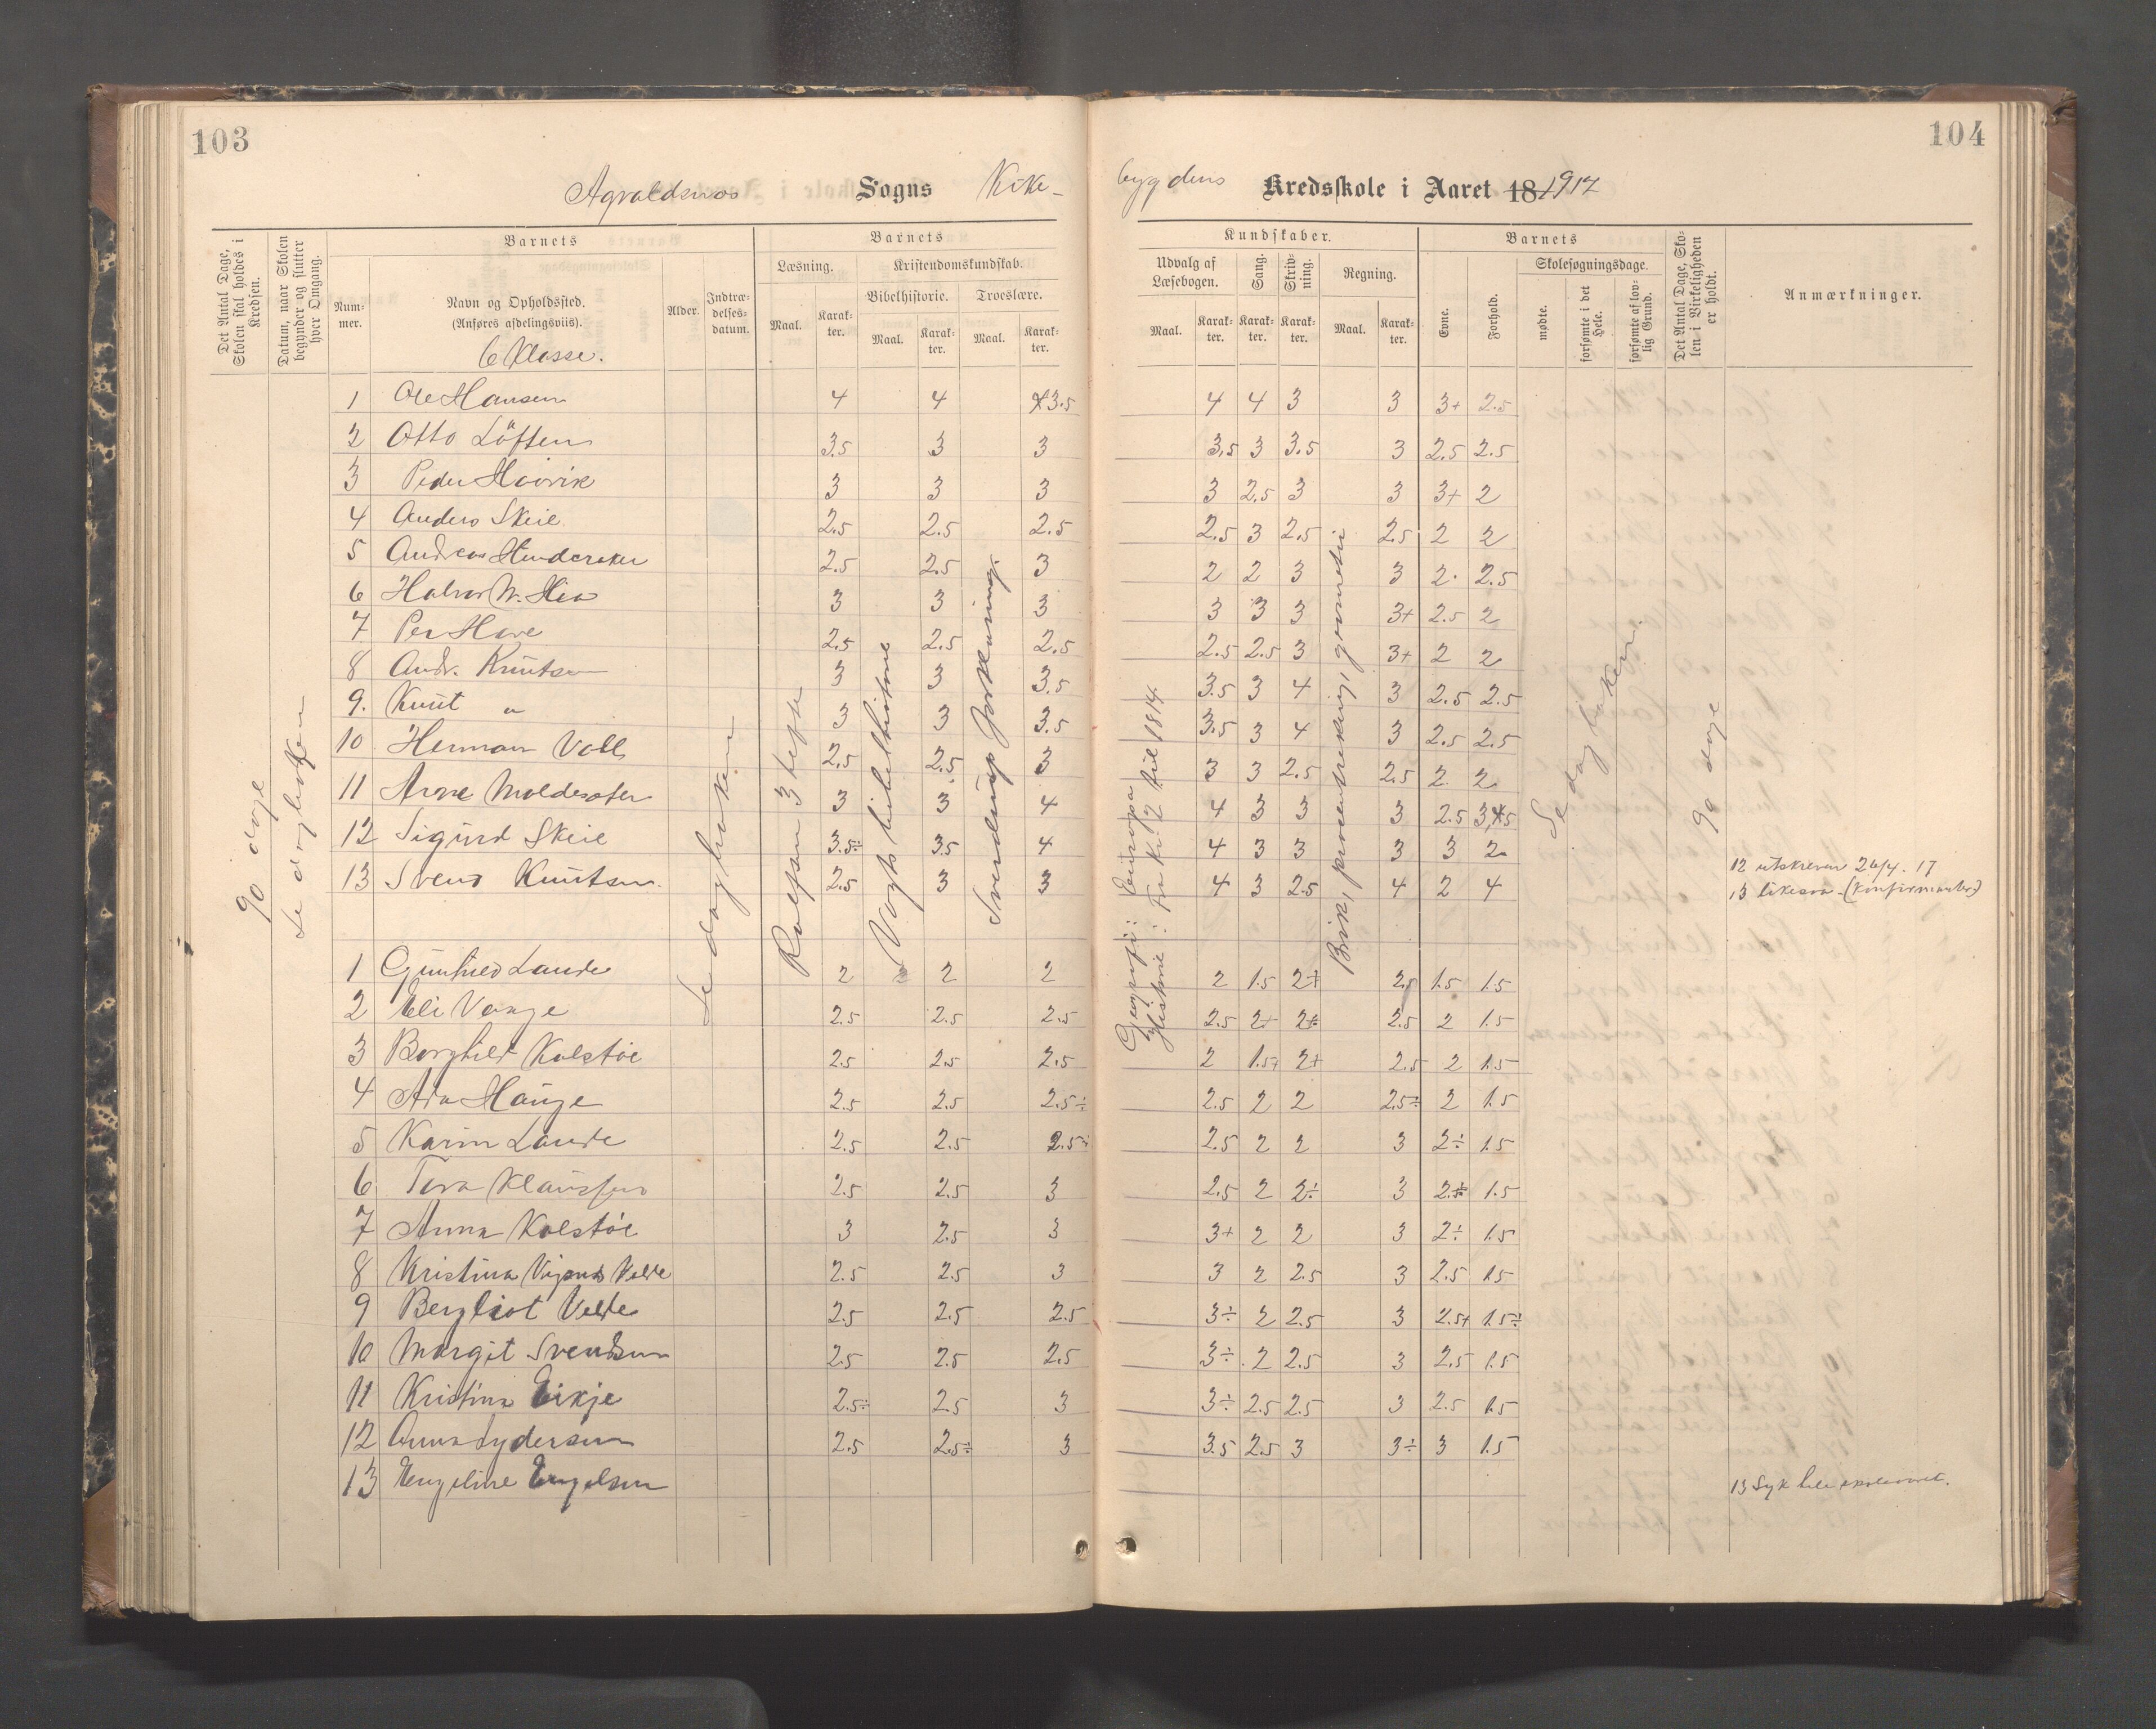 103
104
Sogns
bygdens Kredsskole i Aaret 18 1917
Det Antal Dage, Skolen skal holdes i Kredsen.
Datum, naar Skolen begynder og slutter hver Omgang.
Barnets
Num-
mer.
Navn og Opholdssted.
(Anføres afdelingsviis).
6 Klasse.
Alder.
Indtræ-
delses-
datum.
Barnets
Læsning.
Kristendomskundskab.
Bibelhistorie.
Troeslære.
Maal.
Karak-
ter.
Maal.
Karak-
ter.
Maal.
Karak-
ter.
Kundskaber.
Udvalg af
Læsebogen.
Sang.
Skriv-
ning.
Regning.
Maal.
Karak-
ter.
Karak-
ter.
Karak-
ter.
Maal.
Karak-
ter.
Barnets
Evne.
Forhold.
Skolesøgningsdage.
mødte.
forsømte i det Hele.
forsømte af lov-
lig Grund.
Det Antal Dage, Sko-
len i Virkeligheden
er holdt.
Anmærkninger.
90 dage
Se dagboken
Se dagboken
Rolfsen 3 
Vogts bibelhistorie
Sverdrup forklaring.
Geografi: Europa
Historie: Fra til 1814.
Brøk, procentrekning, geometri
Se dagboken.
90 dage
1 Ole Hansen 4 4 3.5 4 4 3 3 3+ 2.5
2 Otto Löften 3.5 3 3 3,5 3 3.5 3 2.5 2.5
3 Peder Hovik 3 3 3 3 2.5 3 3 3+ 2
4 Anders Skeie 2.5 2.5 2.5 2.5 3 2.5 2.5 2 2
5 Andreas 2.5 2.5 3 2 2 3 3 2 2.5
6 Halvor 3 3 3 3 3 3 3+ 2.5 2
7 Per 2.5 2.5 2.5 2.5 2.5 3 3+ 2 2
8 Andr. Knutsen 3 3 3.5 3.5 3 4 3 2.5 2.5
9. Knut " 3 3 3.5 3.5 3 4 3 2.5 2.5
10 Herman Valle 2.5 2.5 3 3 3 2.5 2.5 2 2
11 Arne 3 3 4 4 3 3 3 2.5 3,5
12 Sigurd Skeie 3.5÷ 3.5 4 4 3 3 3 3 2
13 Svend Knutsen. 2.5 3 3 4 3 2.5 4 2 4
12 utskreven 26/4. 17
13 likesaa - (konfirmanter)
1 Gunhild Lande 2 2 2 2 1.5 2+ 2.5 1.5 1.5
2 Eli 2.5 2.5 2.5 2.5 2+ 2+ 2.5 2 1.5
3 Borghild Kolstøe 2.5 2.5 2.5 2 1.5+ 2+ 2.5 2 1.5
4 Ada Hauge 2.5 2.5 2.5÷ 2.5 2 2 2.5÷ 2 1.5
5 Karin Lande 2.5 2.5 2.5÷ 2.5 2 2 3 2÷ 1.5
6 Tora Klaussen 2.5 2.5 3 2.5 2 2÷ 3 2÷ 1.5
7 Anna Kolstøe 3 2.5 3 3+ 2 2 3 2÷ 1.5
8 Kristina Velde 2.5 2.5 3 3 2 2.5 3 2.5 1.5
9 Bergliot Velde 2.5 2.5 2.5 3÷ 2 2.5 3 2.5+ 1.5÷
10 Margit Svendsen 2.5 2.5 2.5 3÷ 2 2.5 3 2.5 1.5
11 Kristina Eikje 2.5÷ 2.5 3 3÷ 2.5 2.5 3 2.5 1.5
12 Anna Sydersen 2.5 2.5÷ 3 3.5 2.5 3 3÷ 3 1.5
13 Engeline Engelsen
13 Syk hele skoleaaret.